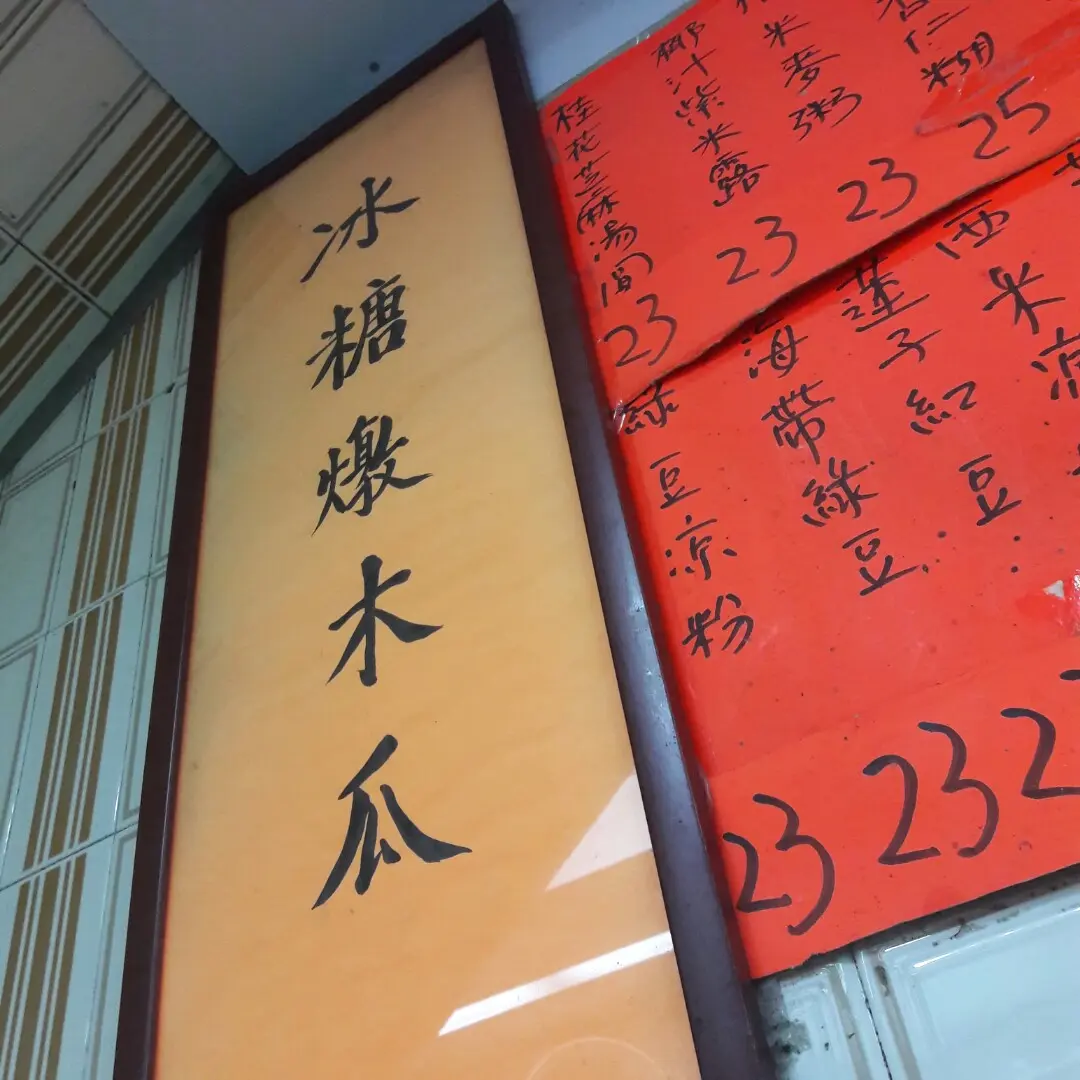 冰糖燉木瓜
杏仁米糊
25
米麥粥
23
椰汁紫米露
23
桂花芝麻湯
23
西米涼
蓮子紅豆
23
海帶綠豆
23
綠豆凉粉
23